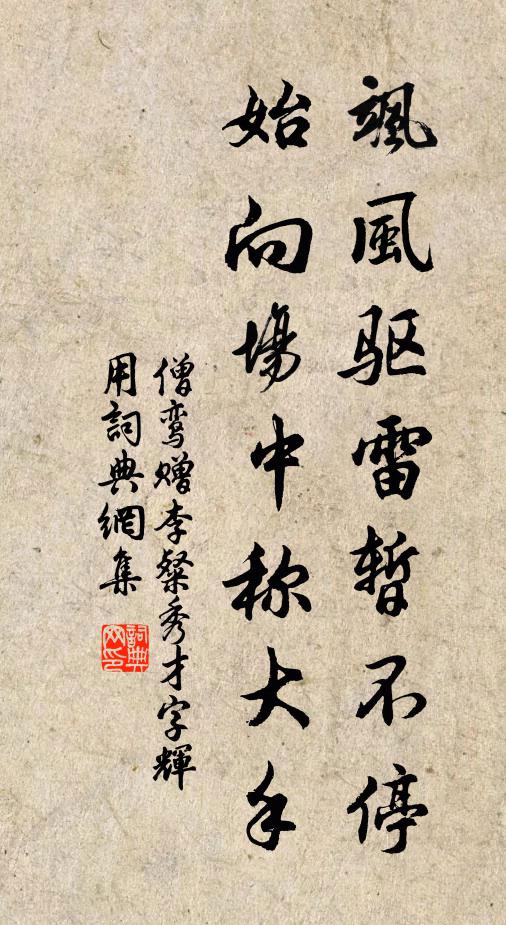 飒風驱雷暂不停
始向場中称大手
僧鸾赠李粲秀才字輝
用詞典網集
詞典网印